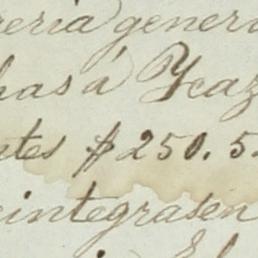 eria genera
has á Ycaz
ntes $250.5
eintegrasen